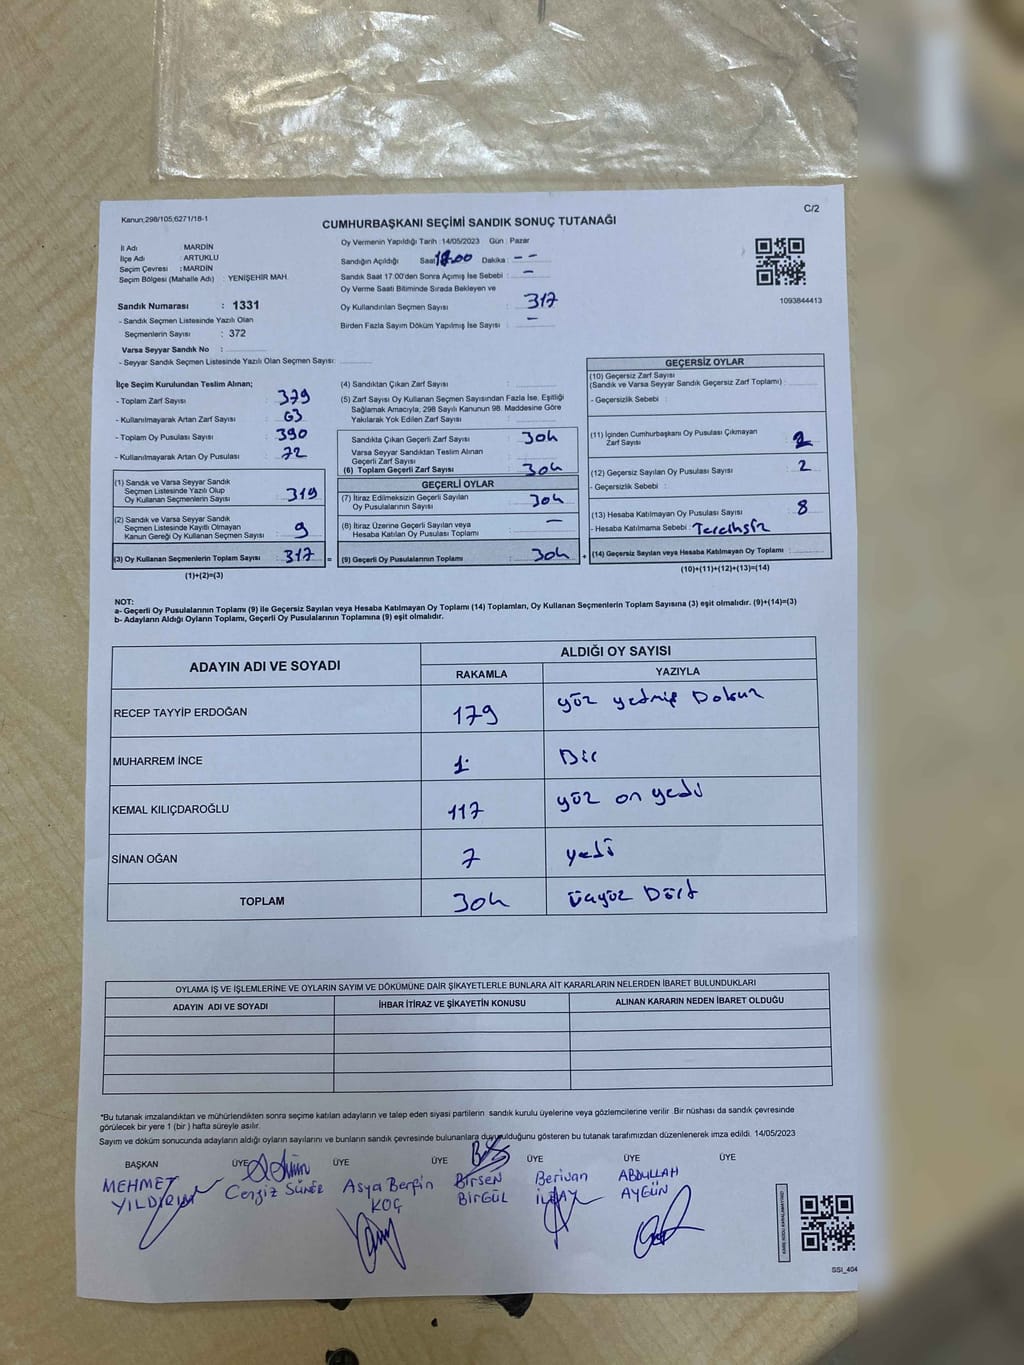 Kanun;298/105;6271/18-1
C/2
CUMHURBAŞKANI SEÇİMİ SANDIK SONUÇ TUTANAĞI
İl Adı MARDİN
İlçe Adı : ARTUKLU
Seçim Çevresi : MARDİN
Seçim Bölgesi (Mahalle Adı) : YENİŞEHİR MAH.
Oy Vermenin Yapıldığı Tarih :14/05/2023 Gün : Pazar
Sandığın Açıldığı Saat Dakika : - -
Sandık Saat 17.00'den Sonra Açımış İse Sebebi : -
Oy Verme Saati Bitiminde Sırada Bekleyen ve
Oy Kullandırılan Seçmen Sayısı : 317
Birden Fazla Sayım Döküm Yapılmış İse Sayısı : -
1093844413
Sandık Numarası : 1331
- Sandık Seçmen Listesinde Yazılı Olan
Seçmenlerin Sayısı : 372
Varsa Seyyar Sandık No :
- Seyyar Sandık Seçmen Listesinde Yazılı Olan Seçmen Sayısı:
İlçe Seçim Kurulundan Teslim Alınan;
- Toplam Zarf Sayısı : 379
- Kullanılmayarak Artan Zarf Sayısı : 63
- Toplam Oy Pusulası Sayısı : 390
- Kullanılmayarak Artan Oy Pusulası : 72
(1) Sandık ve Varsa Seyyar Sandık
Seçmen Listesinde Yazılı Olup
Oy Kullanan Seçmenlerin Sayısı : 319
(2) Sandık ve Varsa Seyyar Sandık
Seçmen Listesinde Kayıtlı Olmayan
Kanun Gereği Oy Kullanan Seçmen Sayısı : 9
(3) Oy Kullanan Seçmenlerin Toplam Sayısı : 317 =
(1)+(2)=(3)
(4) Sandıktan Çıkan Zarf Sayısı :
(5) Zarf Sayısı Oy Kullanan Seçmen Sayısından Fazla İse, Eşitliği
Sağlamak Amacıyla, 298 Sayılı Kanunun 98. Maddesine Göre
Yakılarak Yok Edilen Zarf Sayısı :
Sandıkta Çıkan Geçerli Zarf Sayısı : 304
Varsa Seyyar Sandıktan Teslim Alınan
Geçerli Zarf Sayısı :
(6) Toplam Geçerli Zarf Sayısı : 304
GEÇERLİ OYLAR
(7) İtiraz Edilmeksizin Geçerli Sayılan
Oy Pusulasının Sayısı : 304
(8) İtiraz Üzerine Geçerli Sayılan veya
Hesaba Katılan Oy Pusulası Toplamı : -
(9) Geçerli Oy Pusulalarının Toplamı : 304 +
GEÇERSİZ OYLAR
(10) Geçersiz Zarf Sayısı
(Sandık ve Varsa Seyyar Sandık Geçersiz Zarf Toplamı) :
- Geçersizlik Sebebi :
(11) İçinden Cumhurbaşkanı Oy Pusulası Çıkmayan
Zarf Sayısı :
(12) Geçersiz Sayılan Oy Pusulası Sayısı : 2
- Geçersizlik Sebebi :
(13) Hesaba Katılmayan Oy Pusulası Sayısı : 8
- Hesaba Katılmama Sebebi : Tercihsiz
(14) Geçersiz Sayılan veya Hesaba Katılmayan Oy Toplamı :
(10)+(11)+(12)+(13)=(14)
NOT:
a- Geçerli Oy Pusulalarının Toplamı (9) ile Geçersiz Sayılan veya Hesaba Katılmayan Oy Toplamı (14) Toplamları, Oy Kullanan Seçmenlerin Toplam Sayısına (3) eşit olmalıdır. (9)+(14)=(3)
b- Adayların Aldığı Oyların Toplamı, Geçerli Oy Pusulalarının Toplamına (9) eşit olmalıdır.
ADAYIN ADI VE SOYADI ALDIĞI OY SAYISI
RAKAMLA YAZIYLA
RECEP TAYYİP ERDOĞAN 179 yüz yetmiş Dokuz
MUHARREM İNCE 1 Bir
KEMAL KILIÇDAROĞLU 117 yüz on yedi
SİNAN OĞAN 7 yedi
TOPLAM 304 üçyüz Dört
OYLAMA İŞ VE İŞLEMLERİNE VE OYLARIN SAYIM VE DÖKÜMÜNE DAİR ŞİKAYETLERLE BUNLARA AİT KARARLARIN NELERDEN İBARET BULUNDUKLARI
ADAYIN ADI VE SOYADI İHBAR İTİRAZ VE ŞİKAYETİN KONUSU ALINAN KARARIN NEDEN İBARET OLDUĞU
*Bu tutanak imzalandıktan ve mühürlendikten sonra seçime katılan adayların ve talep eden siyasi partilerin sandık kurulu üyelerine veya gözlemcilerine verilir .Bir nüshası da sandık çevresinde
görülecek bir yere 1 (bir ) hafta süreyle asılır.
Sayım ve döküm sonucunda adayların aldığı oyların sayılarını ve bunların sandık çevresinde bulunanlara duyurulduğunu gösteren bu tutanak tarafımızdan düzenlenerek imza edildi. 14/05/2023
BAŞKAN ÜYE ÜYE ÜYE ÜYE ÜYE ÜYE
MEHMET YILDIRIM
Cengiz
Asya Berfin KOÇ
BİRSEN BİRGÜL
Berivan
ABDULLAH AYGÜN
SSI_404